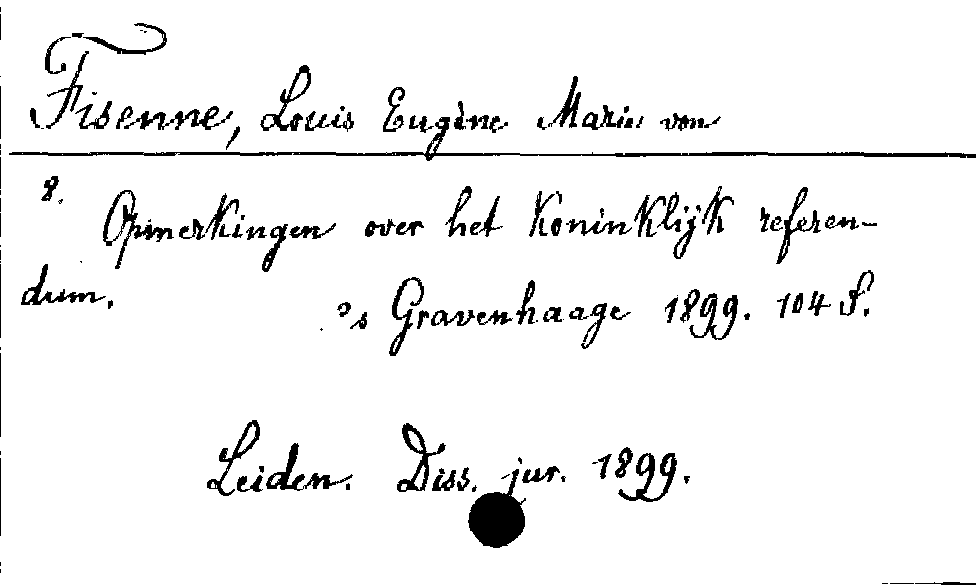 Fisenne, Louis Eugène Marie von
8.
Opmerkingen over het Koninklijk referen-
dum.
's Gravenhaage 1899. 104 S.
Leiden. Diss. jur. 1899.